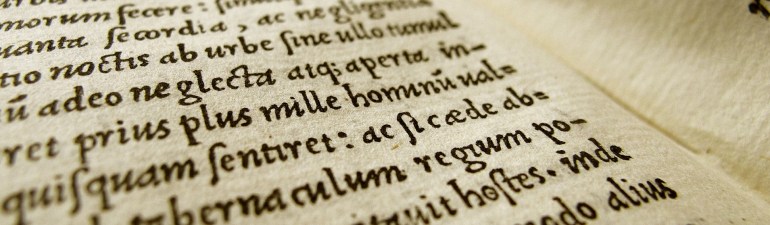 morum fecere: ſimul
quanta ſecordia, ac negligentia
tio noctis ab urbe ſine ullo tumul
ū adeo neglecta atq; aperta in-
ret prius plus mille hominū ual=
quiſquam ſentiret: ac ſi cæde ab=
tabernaculum regium po-
hoſtes. inde
alius